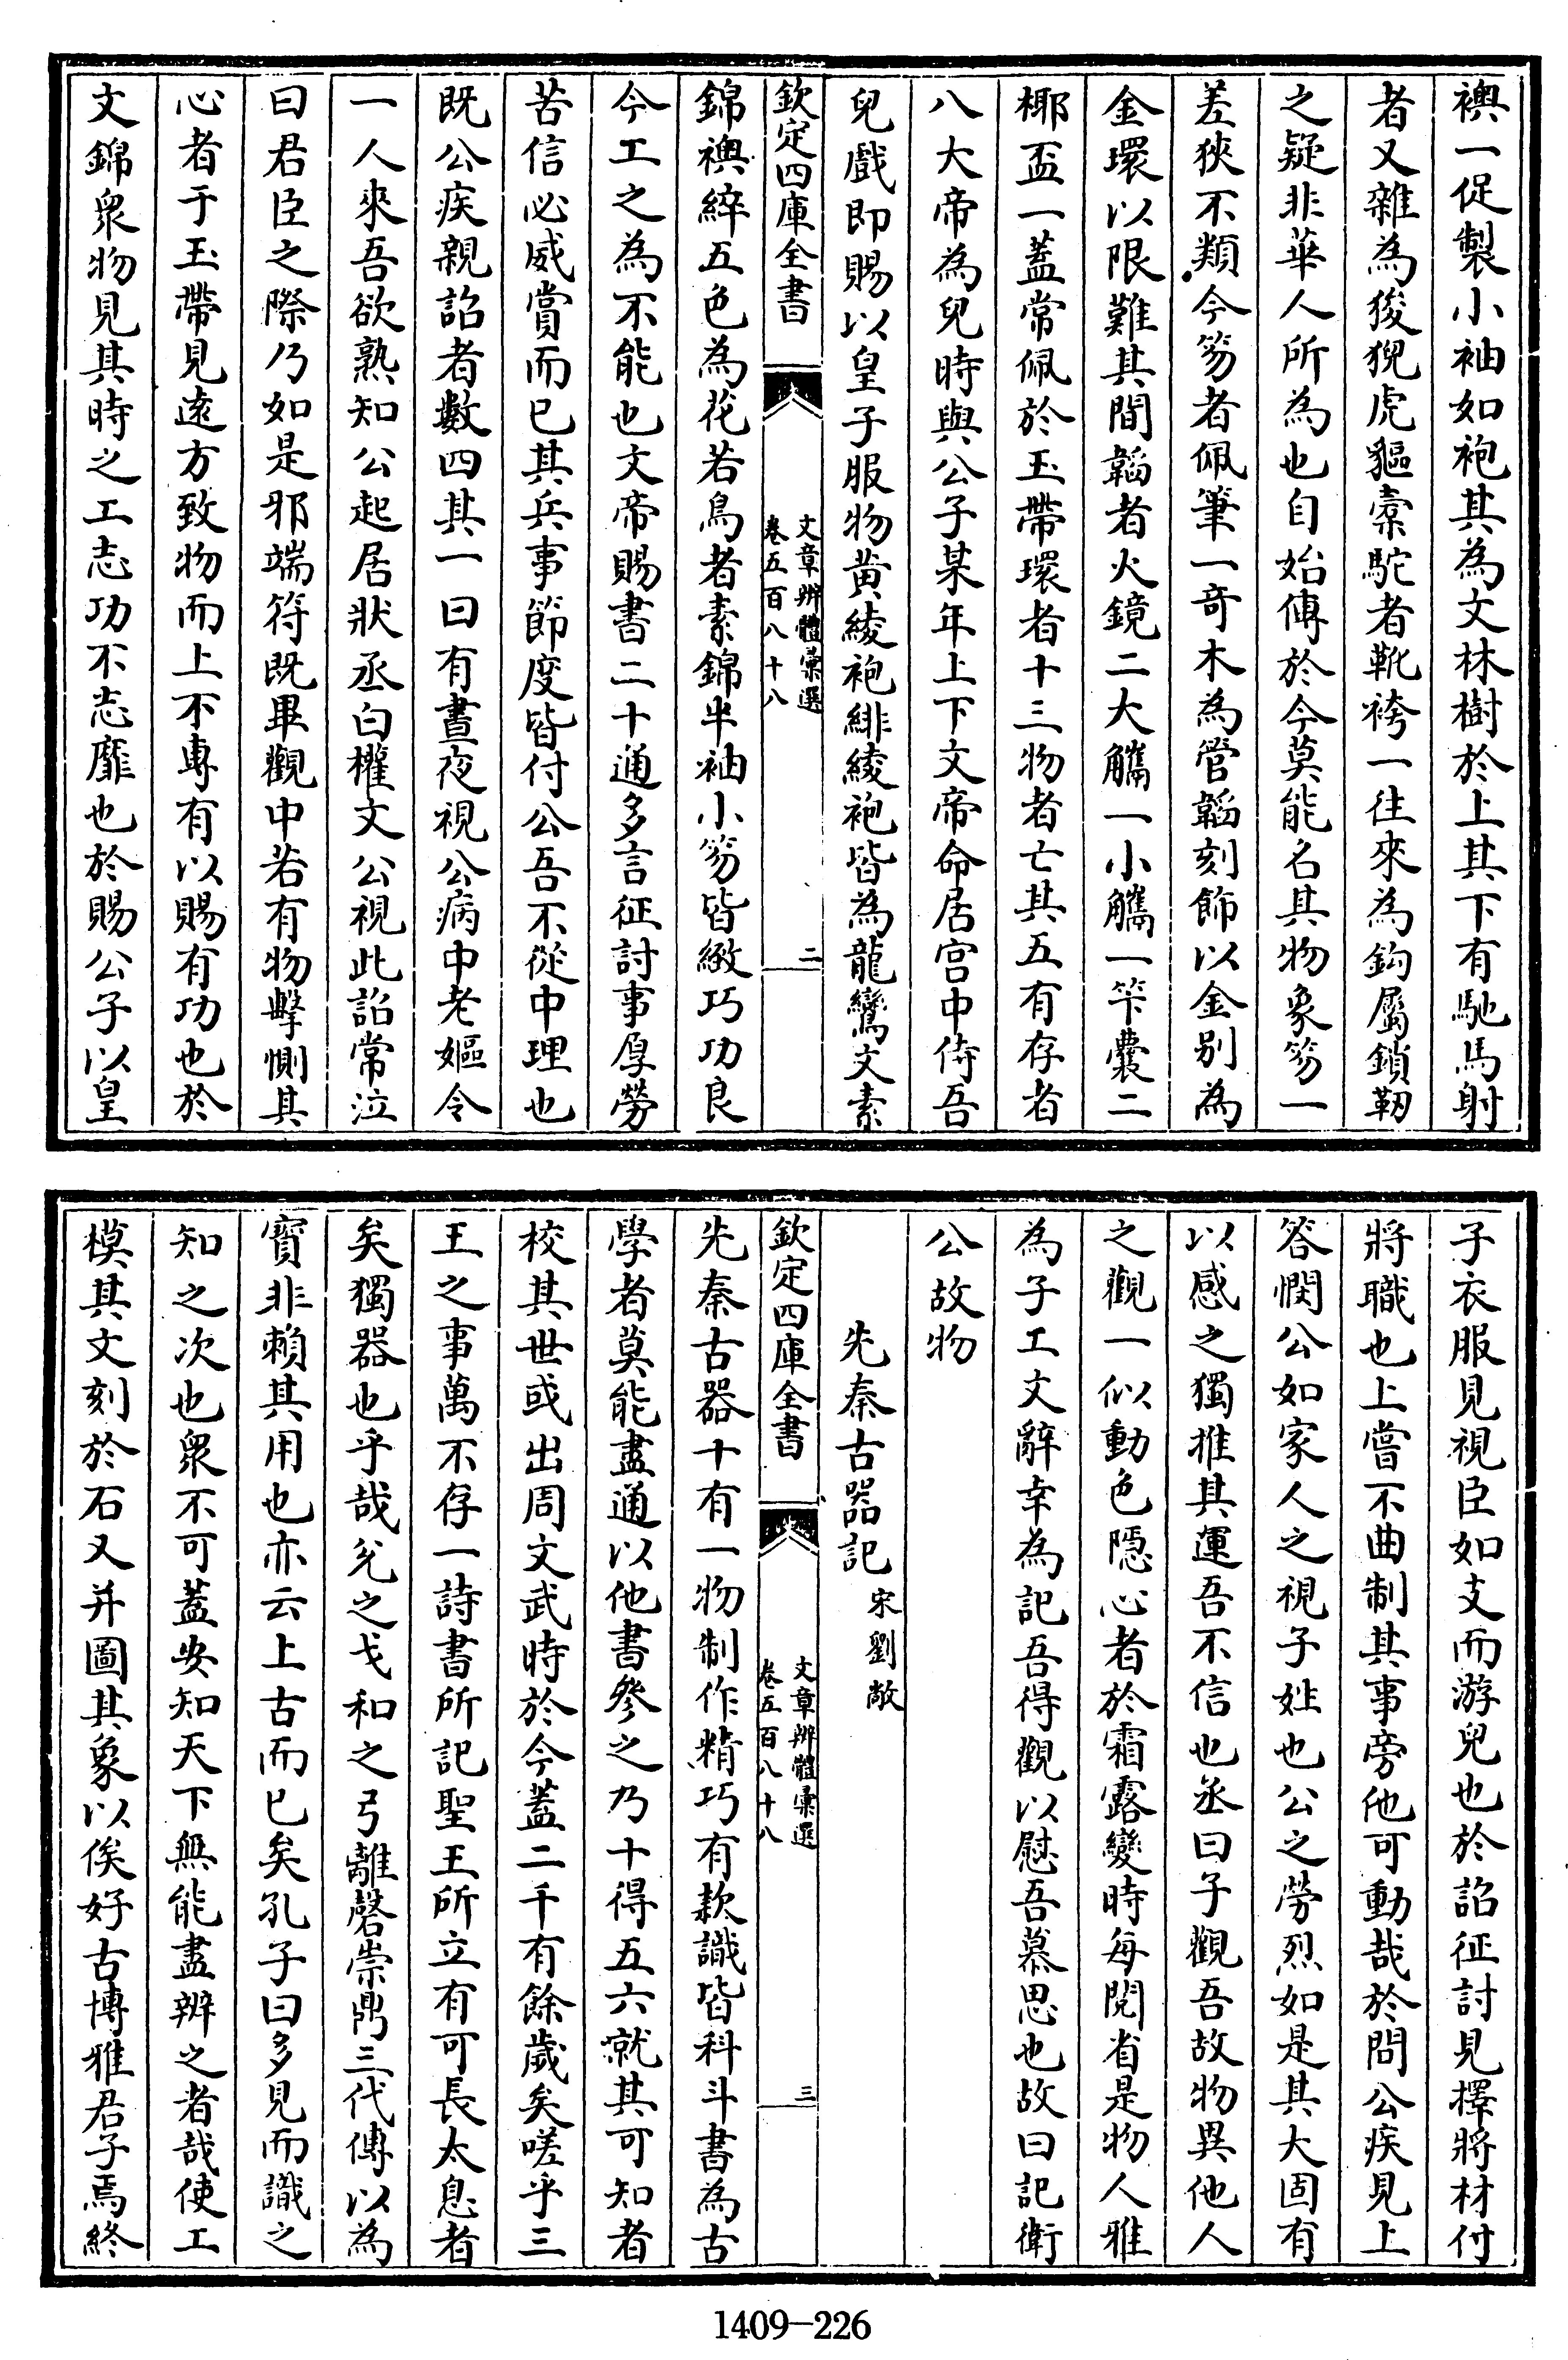 襖一促製小袖如袍其為文林樹於上其下有馳馬射
者又雜為狻猊虎貙橐駝者靴袴一往來為鈎屬鎖靭
之疑非華人所為也自始傳於今莫能名其物象笏一
差狹不類今笏者佩筆一奇木為管韜刻飾以金别為
金環以限難其間韜者火鏡二大觿一小觿一笇囊二
椰盃一蓋常佩於玉帶環者十三物者亡其五有存者
八大帝為兒時與公子某年上下文帝命居宫中侍吾
兒戲即賜以皇子服物黄綾袍緋綾袍皆為龍鸞文素
欽定四庫全書
文章辨體彙選
卷五百八十八
二
錦襖綷五色為花若鳥者素錦半袖小笏皆緻巧功良
今工之為不能也文帝賜書二十通多言征討事厚勞
苦信必威賞而已其兵事節度皆付公吾不從中理也
既公疾親詔者數四其一曰有晝夜視公病中老嫗令
一人來吾欲熟知公起居狀丞白權文公視此詔常泣
曰君臣之際乃如是邪端符既畢觀中若有物擊惻其
心者于玉帶見遠方致物而上不專有以賜有功也於
文錦衆物見其時之工志功不志靡也於賜公子以皇
子衣服見視臣如支而游兒也於詔征討見擇將材付
將職也上嘗不曲制其事旁他可動哉於問公疾見上
答憫公如家人之視子姓也公之勞烈如是其大固有
以感之獨推其運吾不信也丞曰子觀吾故物異他人
之觀一似動色隱心者於霜露變時每閱省是物人雅
為子工文辭幸為記吾得觀以慰吾慕思也故曰記衛
公故物
先秦古器記 宋劉敞
欽定四庫全書
文章辨體彙選
卷五百八十八
三
先秦古器十有一物制作精巧有款識皆科斗書為古
學者莫能盡通以他書參之乃十得五六就其可知者
校其世或出周文武時於今蓋二千有餘歲矣嗟乎三
王之事萬不存一詩書所記聖王所立有可長太息者
矣獨器也乎哉兊之戈和之弓離磬崇鼎三代傳以為
寳非賴其用也亦云上古而已矣孔子曰多見而識之
知之次也衆不可蓋安知天下無能盡辨之者哉使工
模其文刻於石又并圖其象以俟好古博雅君子焉終
1409-226